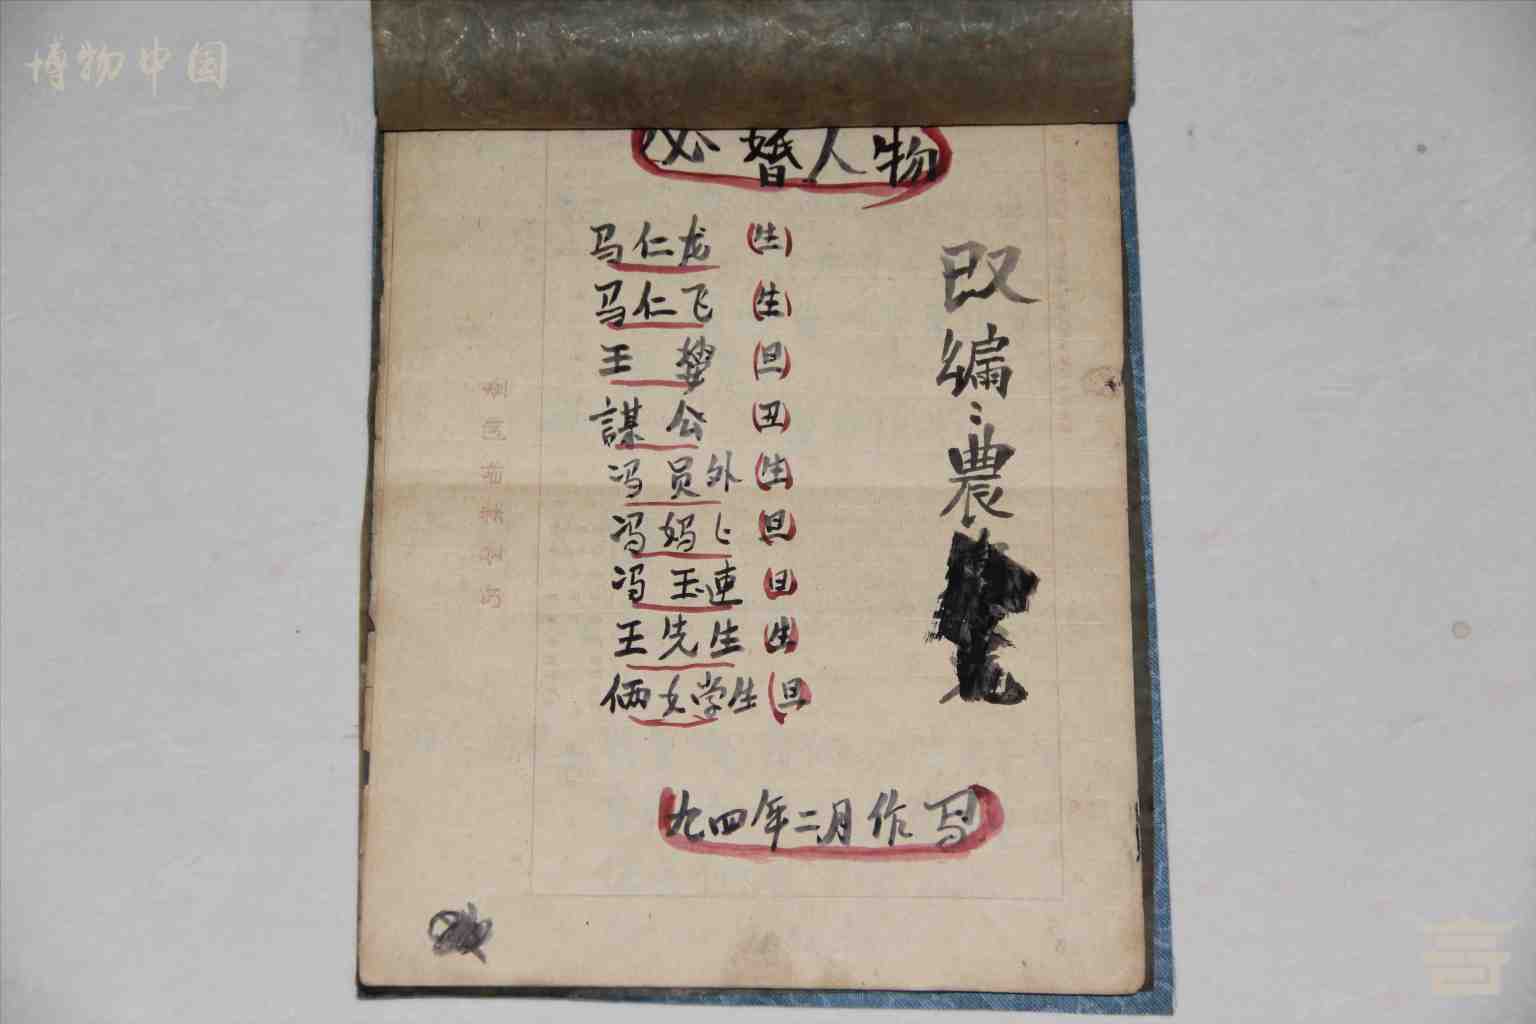 博物中国
必婚人物
马仁龙 (生)
马仁飞 (生)
王 婆 (旦)
謀 公 (丑)
冯 员外 (生)
冯 妈〻 (旦)
冯 玉連 (旦)
王先生 (生)
俩女学生 (旦)
改编:農
九四年二月作写